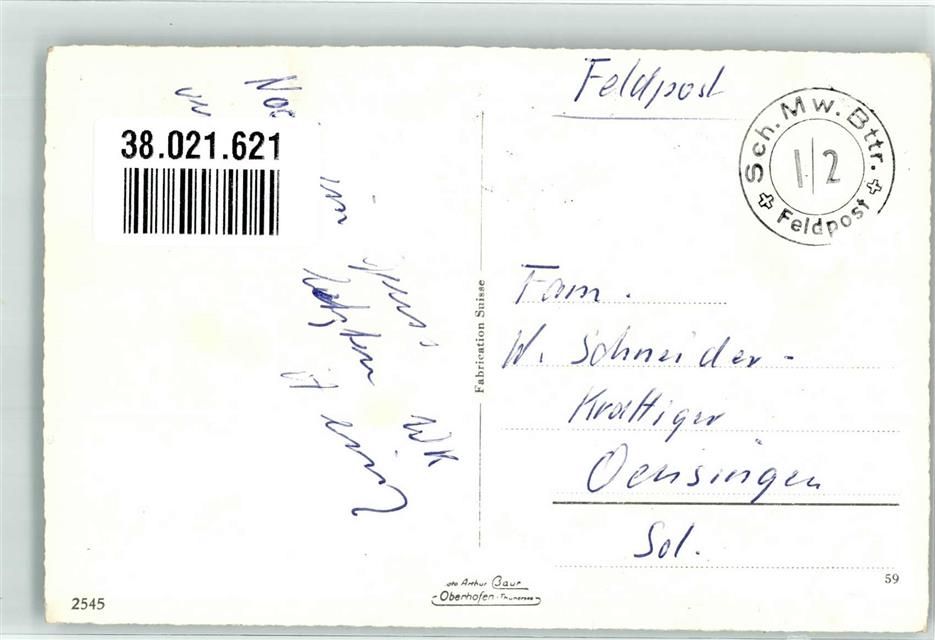 Feldpost
Sch. Mw. Bttr.
1/2
Feldpost
38.021.621
im
letzten WK
Fabrication Suisse
Fam.
W. Schneider-
Krattiger
Oensingen
Sol.
59
2545
Arthur Baur
Oberhofen-Thunersee